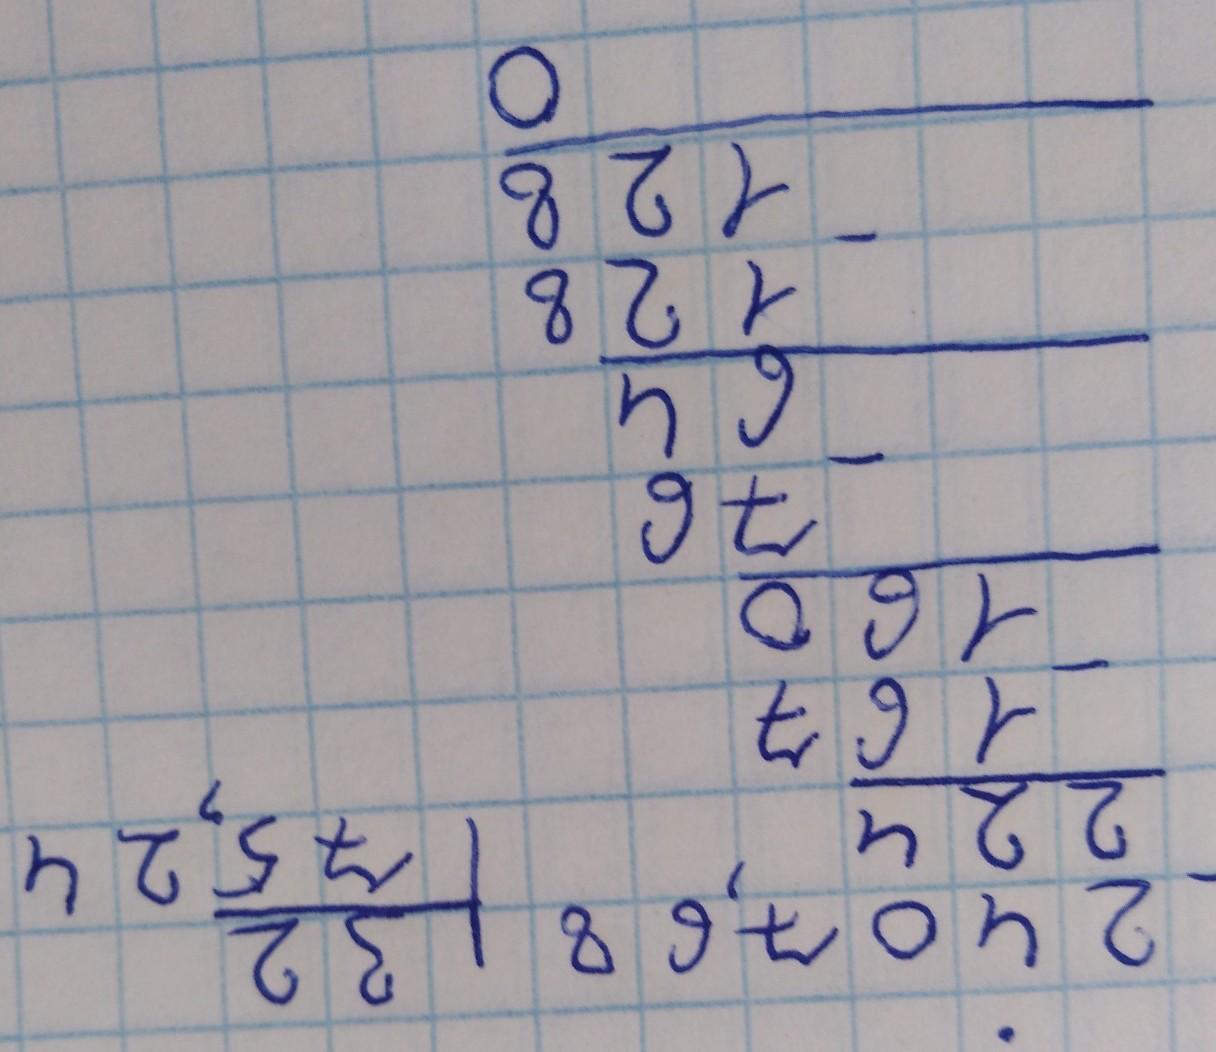 - 2407,68 | 32
224 75,24
- 167
160
- 76
64
- 128
128
0